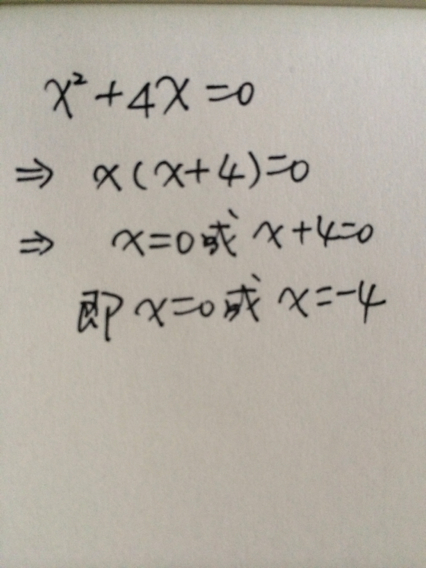 x²+4x=0
⇒ x(x+4)=0
⇒ x=0或 x+4=0
即 x=0或 x=-4